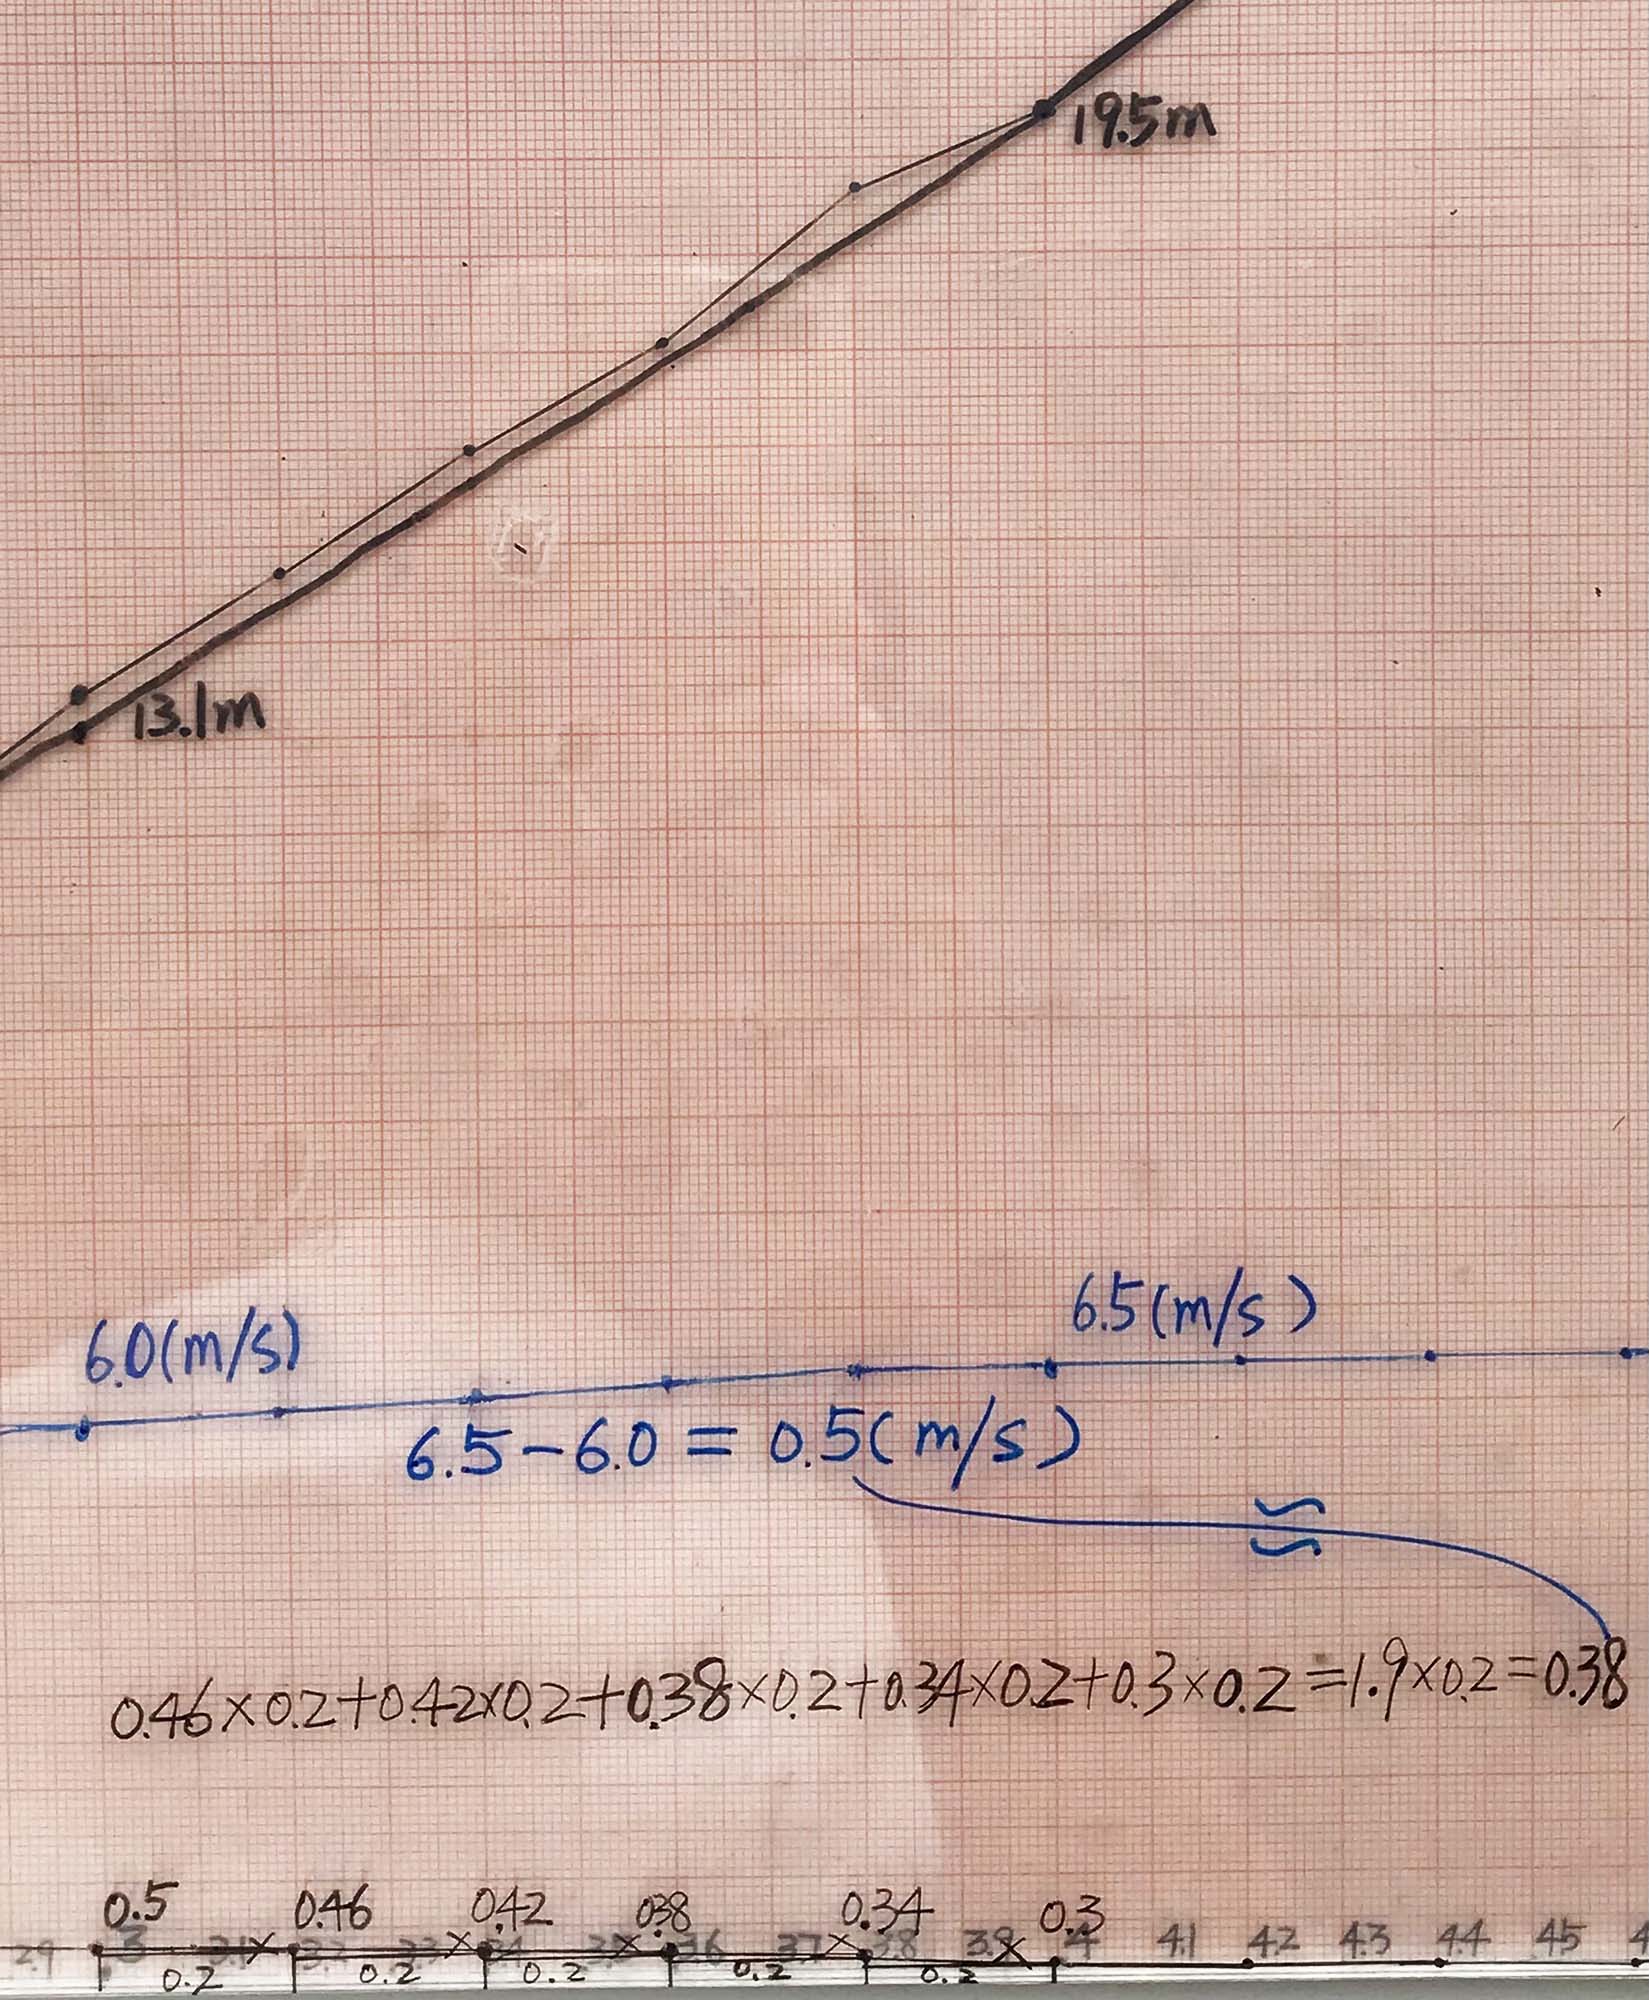 19.5m
13.1m
6.5(m/s)
6.0(m/s)
6.5-6.0=0.5(m/s)
≒
0.46×0.2+0.42×0.2+0.38×0.2+0.34×0.2+0.3×0.2=1.9×0.2=0.38
0.5 0.46 0.42 0.38 0.34 0.3
2.9 3 3.1 3.2 3.3 3.4 3.5 3.6 3.7 3.8 3.9 4 4.1 4.2 4.3 4.4 4.5
0.2 0.2 0.2 0.2 0.2